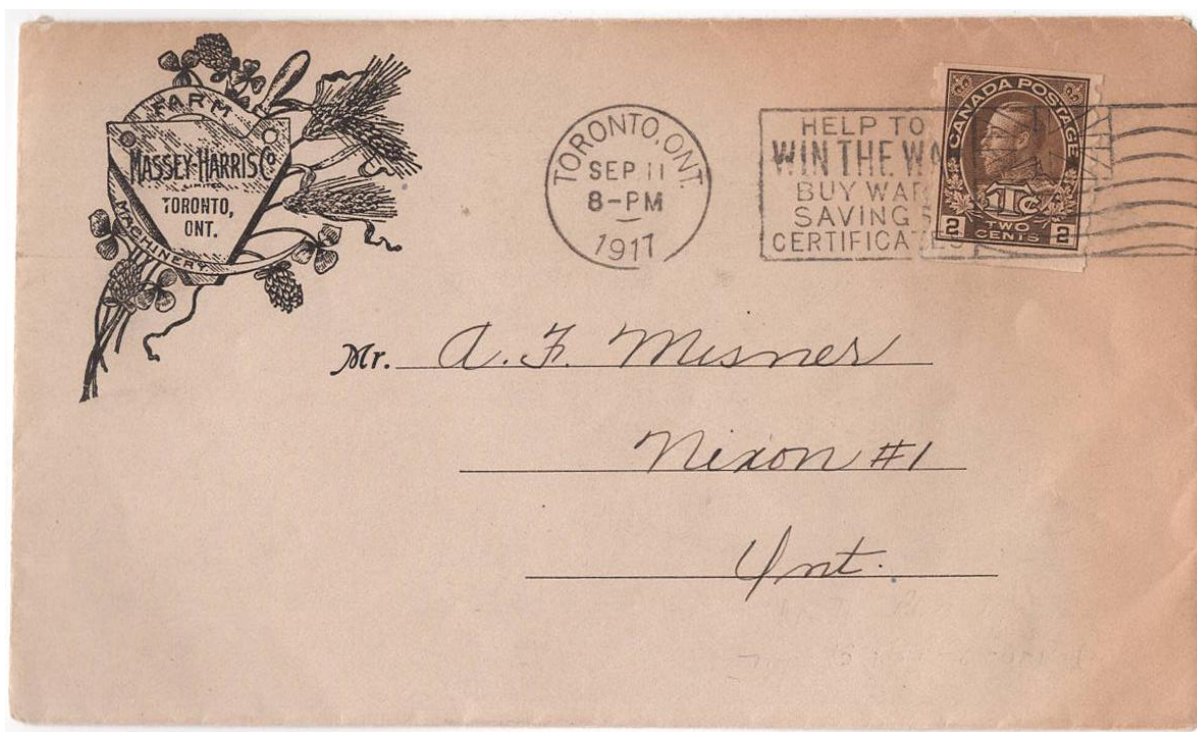 FARM
MASSEY-HARRIS CO
LIMITED
TORONTO,
ONT.
MACHINERY
TORONTO, ONT.
SEP 11
8-PM
1917
HELP TO
WIN THE WA
BUY WAR
SAVINGS
CERTIFICATES
CANADA POSTAGE
1Tc
2 TWO CENTS 2
Mr. A. F. Misner
Nixon #1
Ont.